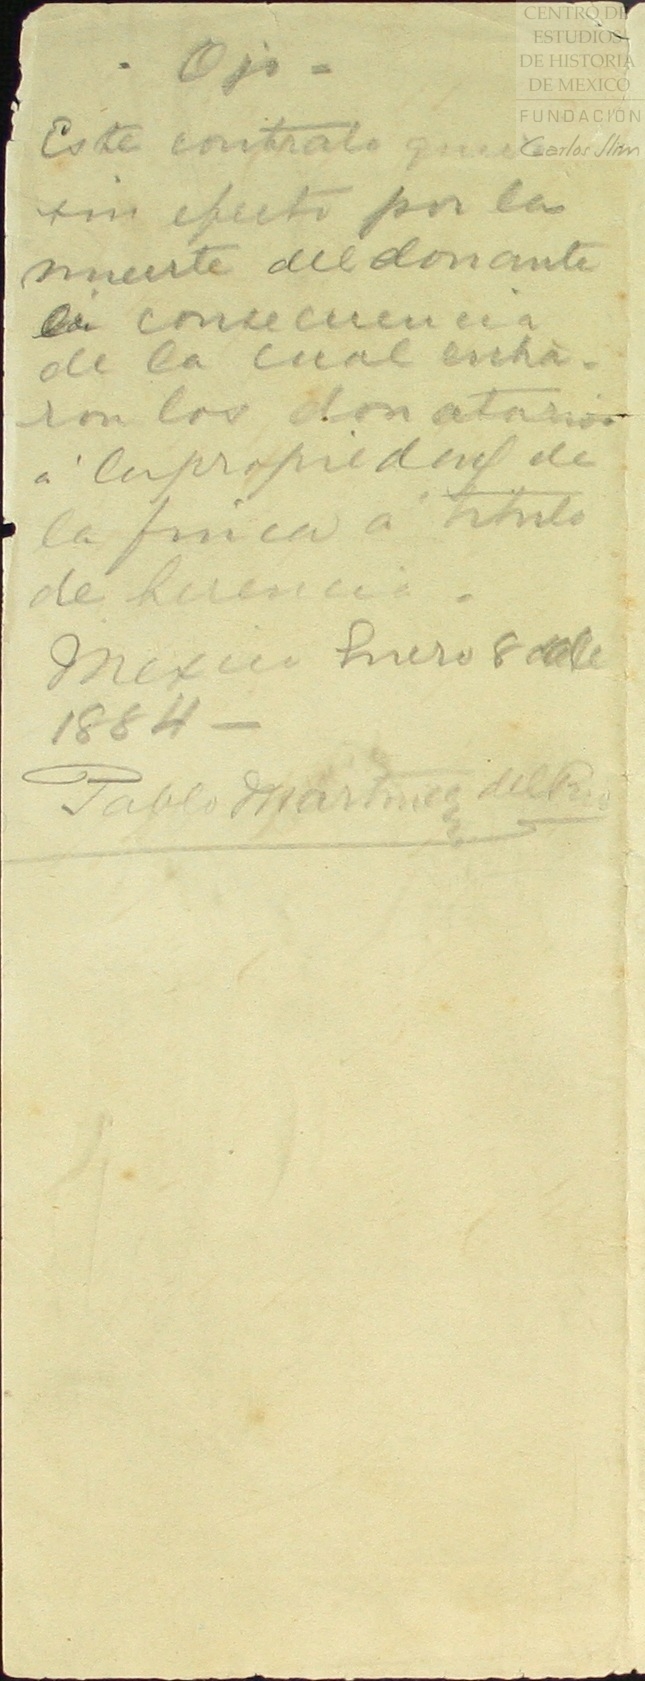 CENTRO DE
ESTUDIOS
DE HISTORIA
DE MEXICO
FUNDACIÓN
Carlos Slim
- Ojo -
Este contrato
sin efecto por la
muerte del donante
á consecuencia
de la cual entra-
ron los donatarios
á la propiedad de
la finca á titulo
de herencia.
Mexico Enero 8 de
1884 —
Pablo Martinez del Rio